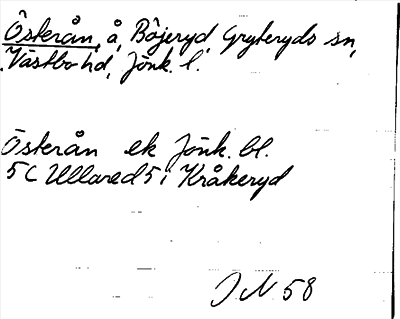 Österån, å, Böjeryd, Gryteryds sn,
Västbo hd, Jönk. l.
Österån ek Jönk. bl.
5C Ullared 5 i Kråkeryd
JN 58